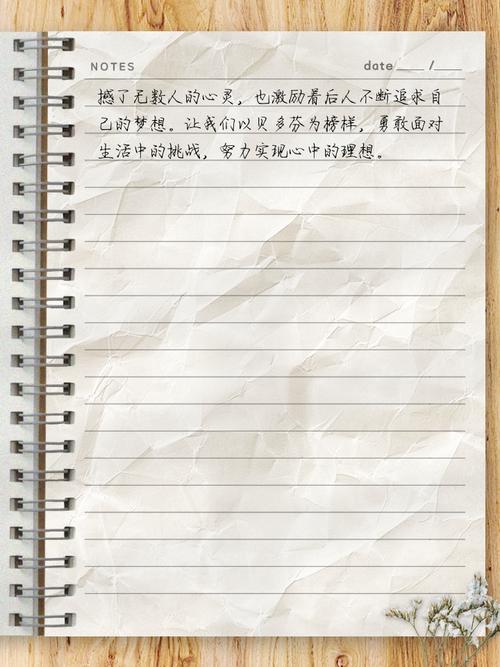 NOTES
date ____ / ____
撼了无数人的心灵，也激励着后人不断追求自
己的梦想。让我们以贝多芬为榜样，勇敢面对
生活中的挑战，努力实现心中的理想。